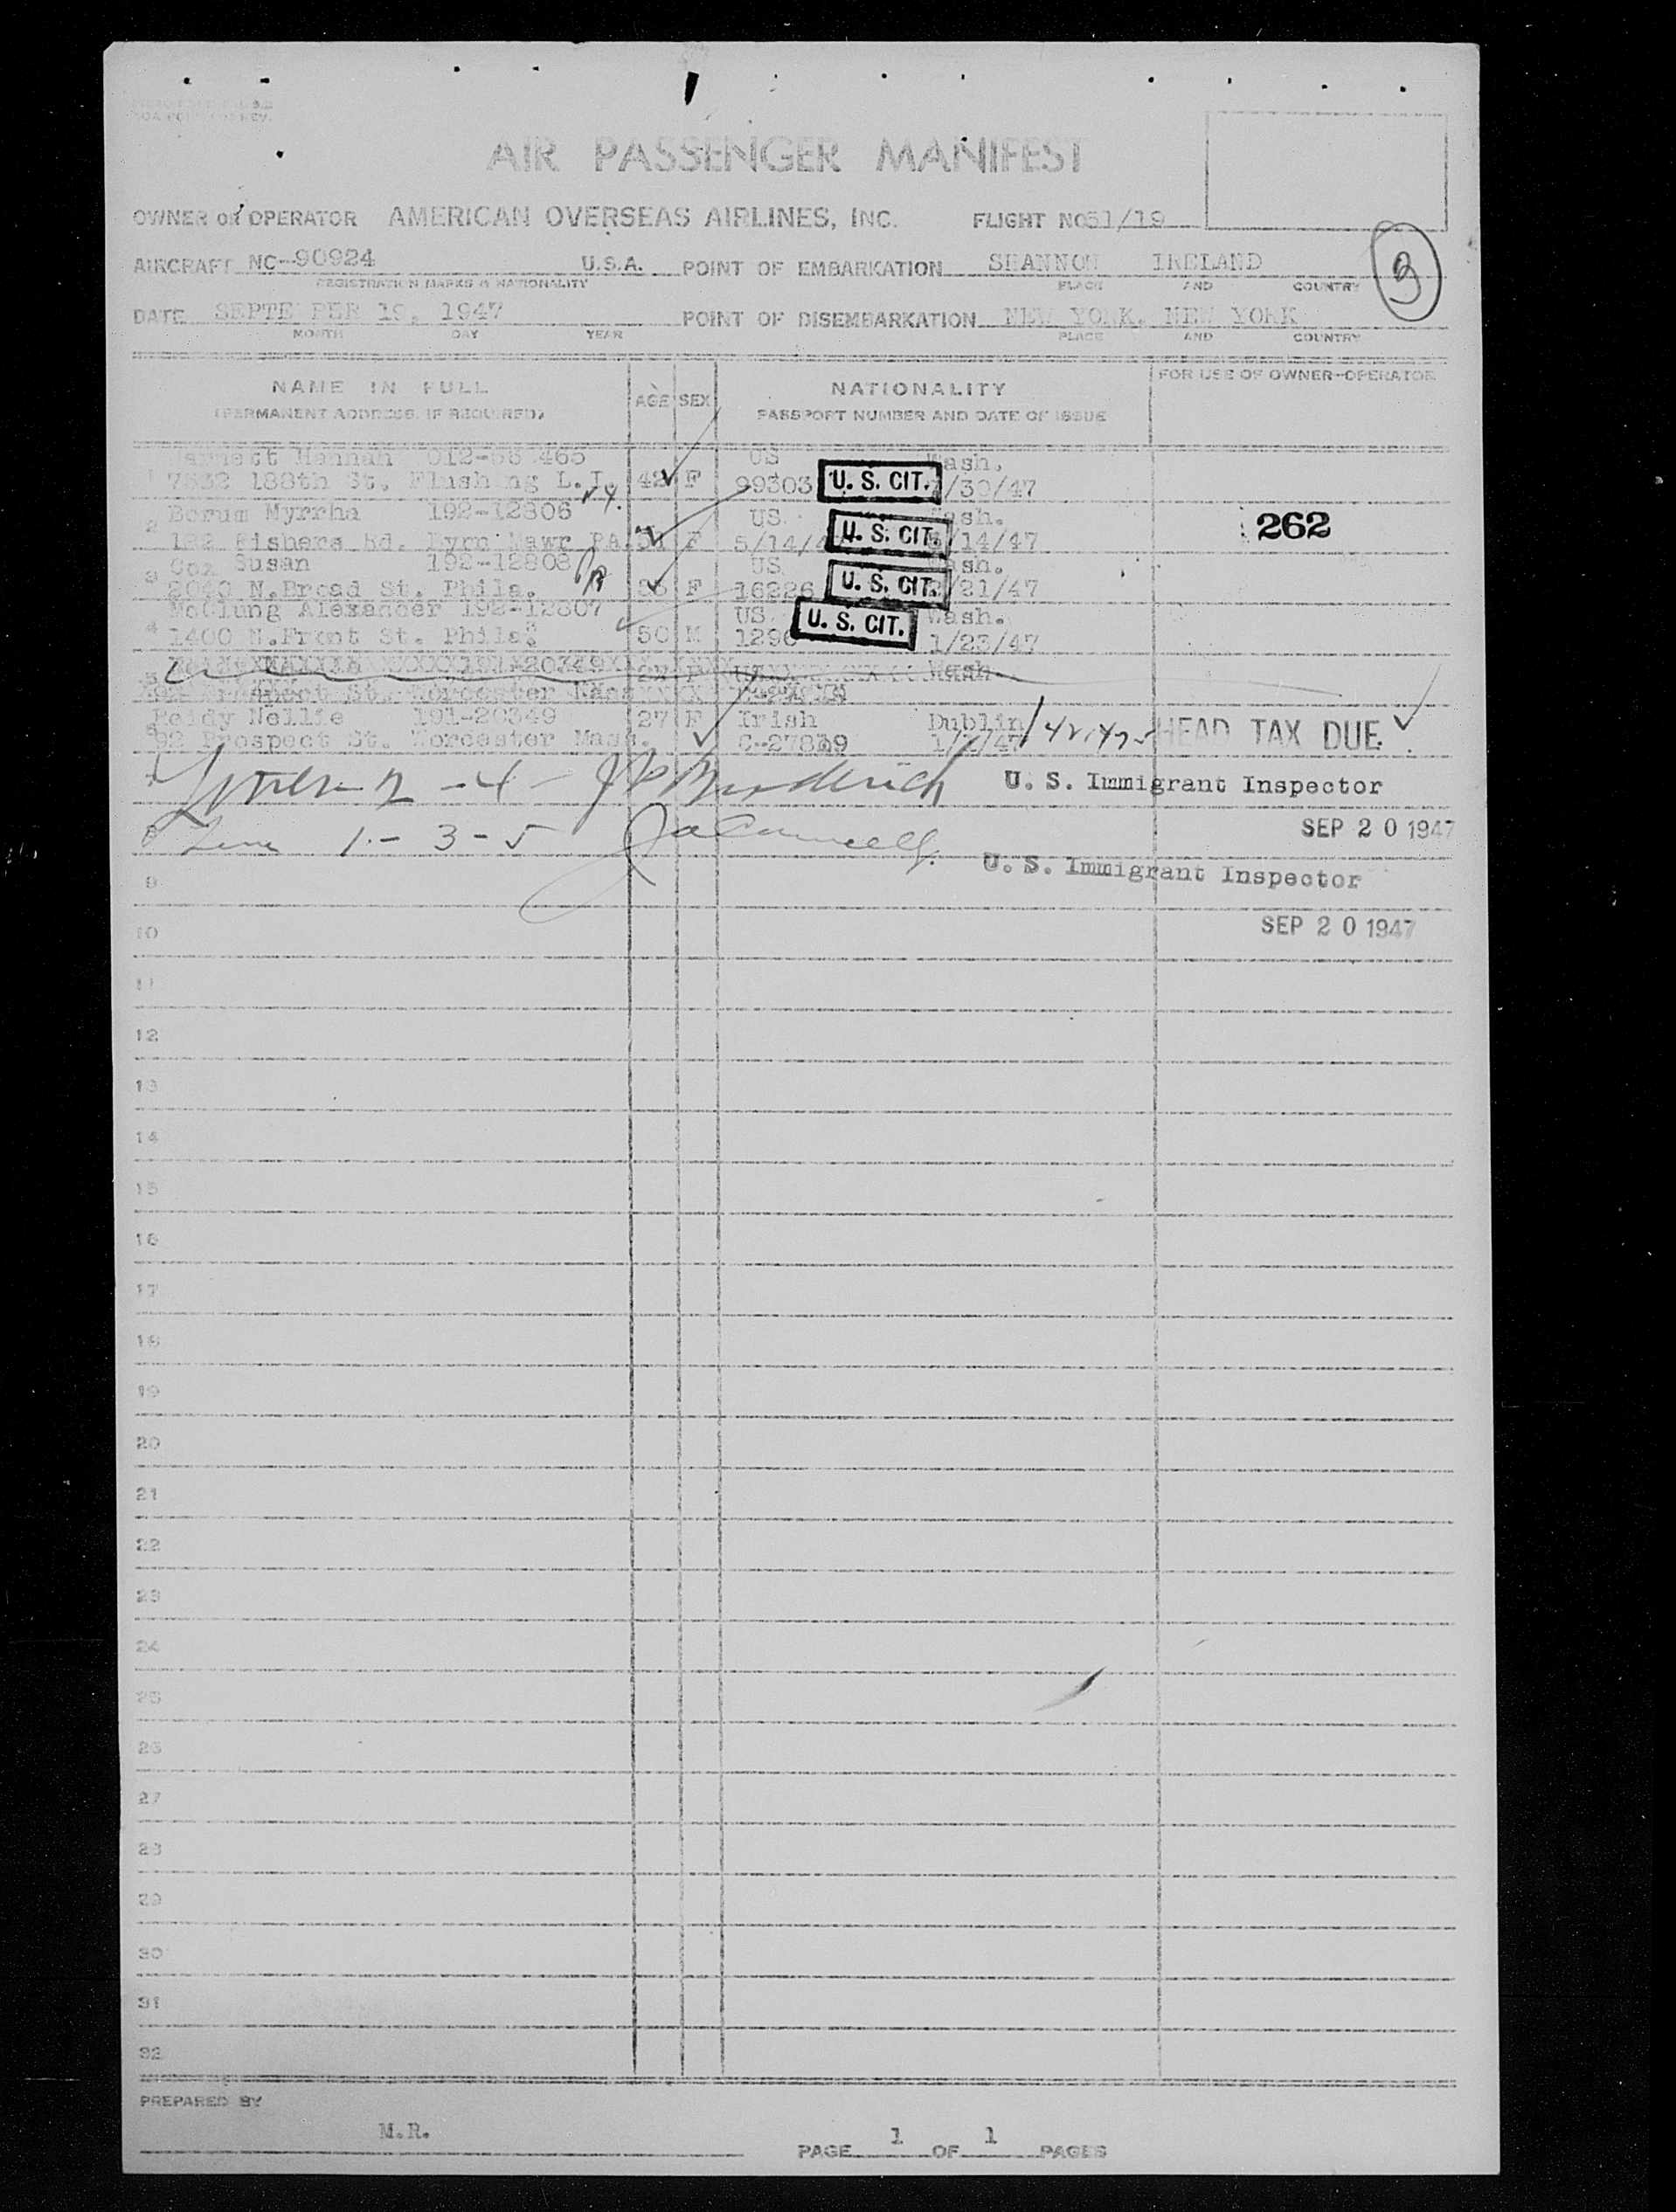 AIR PASSENGER MANIFEST
OWNER OR OPERATOR AMERICAN OVERSEAS AIRLINES, INC. FLIGHT NO 51/19
AIRCRAFT NC-90924 U.S.A. POINT OF EMBARKATION SHANNON IRELAND
REGISTRATION MARKS & NATIONALITY PLACE AND COUNTRY
DATE SEPTE BER 19, 1947 POINT OF DISEMBARKATION NEW YORK, NEW YORK
MONTH DAY YEAR PLACE AND COUNTRY
NAME IN FULL AGE SEX NATIONALITY FOR USE OF OWNER-OPERATOR
(PERMANENT ADDRESS, IF REQUIRED) PASSPORT NUMBER AND DATE OF ISSUE
Hannah US Wash.
1 188th St. Flushing L.I. 42 F 99303 U. S. CIT. /30/47
N.Y.
2 Borum Myrrha 192-12806 US Wash.
Fishers Rd. Bryn Mawr PA F 5/14/4 U. S. CIT. /14/47
262
3 Cox Susan 192-12808 US Wash.
2040 N.Broad St. Phila. PA F 16226 U. S. CIT. /21/47
4 McClung Alexander 192-12807 US Wash.
1400 N.Front St. Phila. 50 M 1296 U. S. CIT. 1/23/47
5 20349 Wash.
St. Worcester
6 Reidy Nellie 191-20349 27 F Irish Dublin
92 Prospect St. Worcester Mass. C-27839 HEAD TAX DUE
7 2 - 4 - U. S. Immigrant Inspector
8 Line 1 - 3 - 5 SEP 20 1947
U. S. Immigrant Inspector
9
SEP 20 1947
10
11
12
13
14
15
16
17
18
19
20
21
22
23
24
25
26
27
28
29
30
31
32
PREPARED BY
M.R.
PAGE 1 OF 1 PAGES